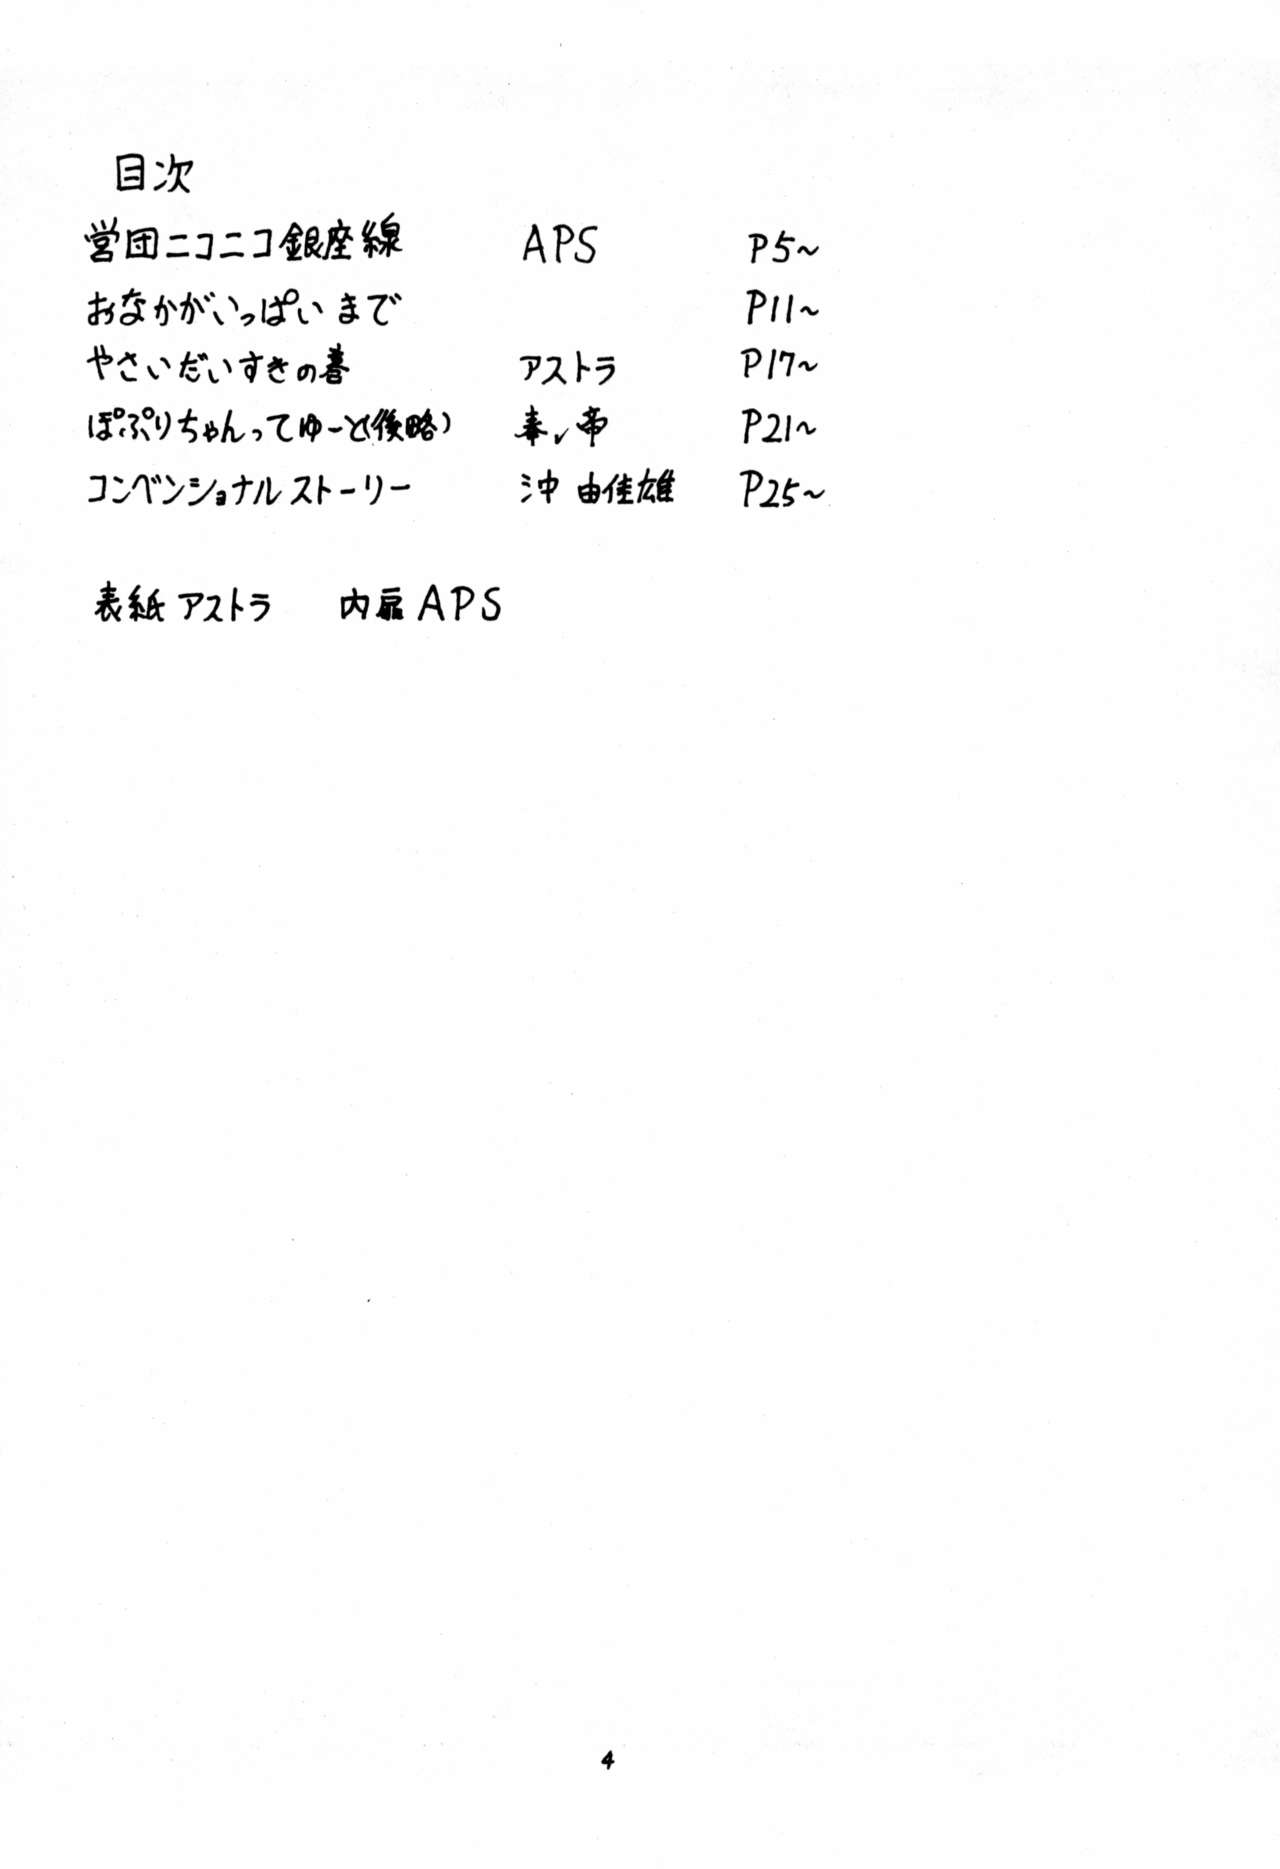 目次
営団ニコニコ銀座線 APS P5~
おなかがいっぱいまで P11~
やさいだいすきの巻 アストラ P17~
ぽぷりちゃんってゆーと(後略) 奉 帝 P21~
コンベンショナルストーリー 沖 由佳雄 P25~
表紙 アストラ 内扉 APS
4